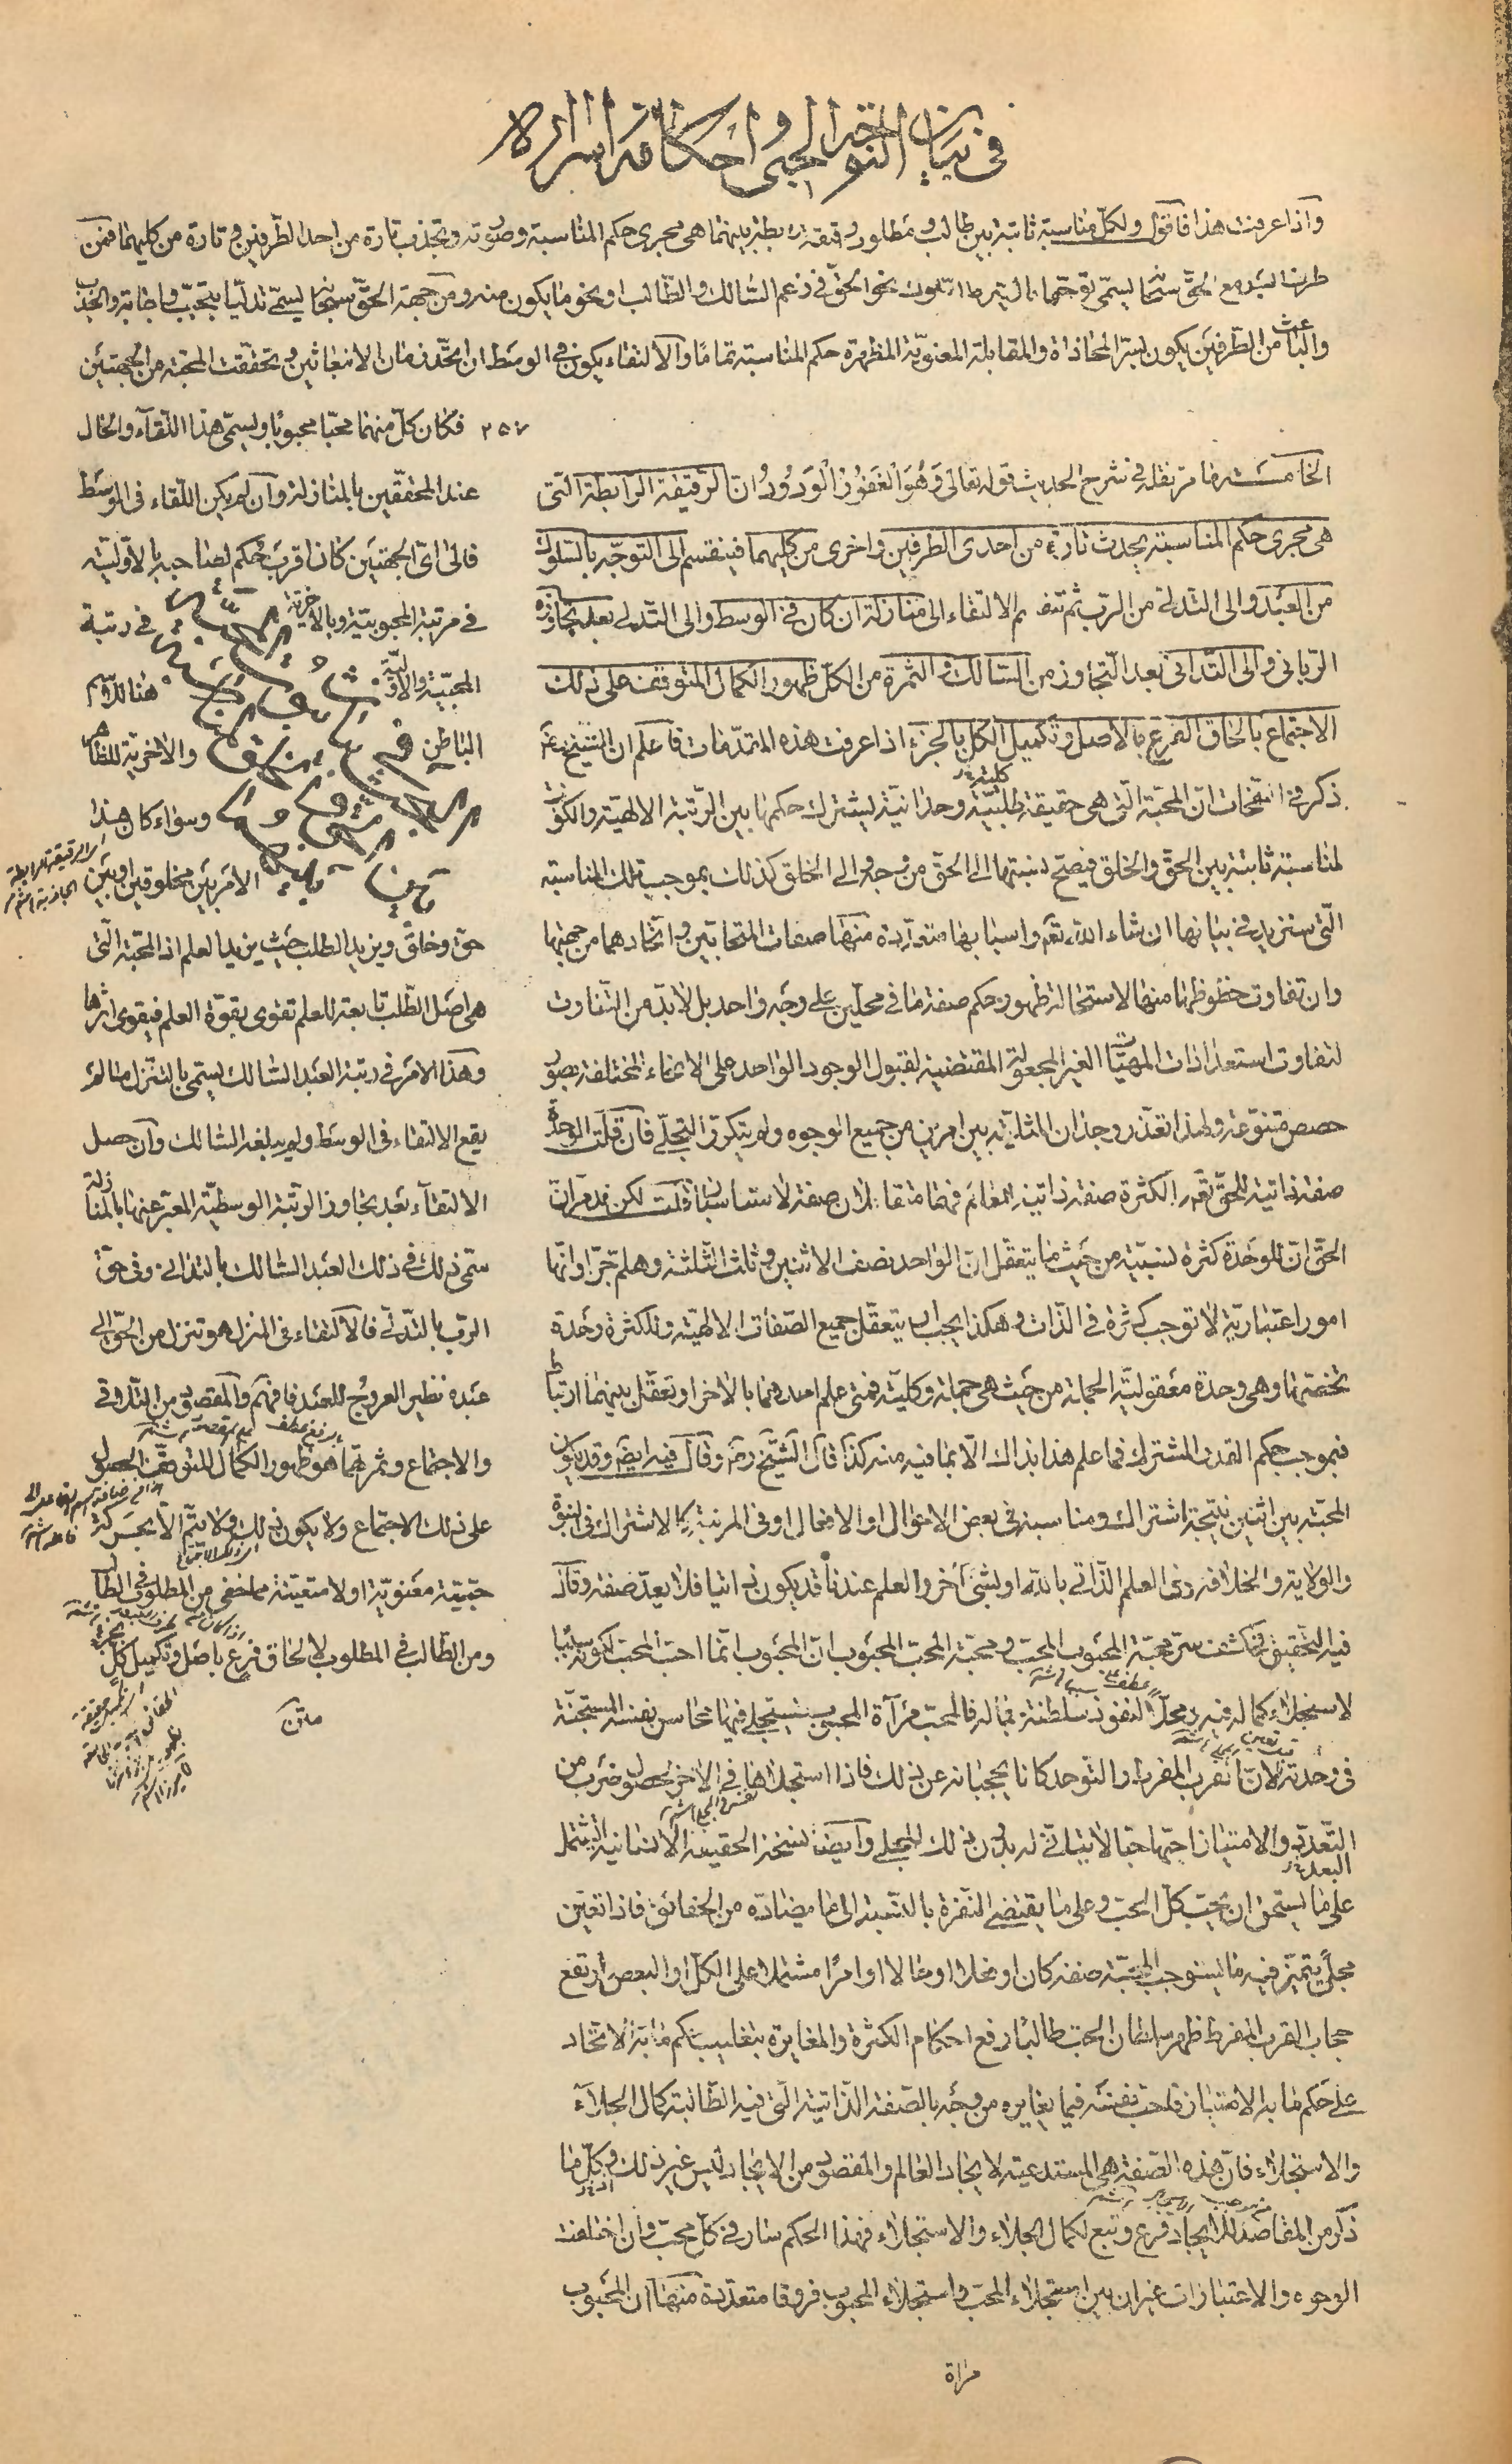 في بيان التوجه الحبي و احكامه و اسراره
واذا عرفت هذا فاقول ولكل مناسبة ثابتة بين طالب ومطلوب رقيقة رابطة بينهما هي مجرى حكم المناسبة وصورته وتجذب تارة من احد الطرفين و تارة من كليهما فمن
طرف العبد مع الحق سبحانه يسمى توجها بالسير والسلوك نحو الحق في زعم السالك والطالب او نحو ما يكون منه ومن جهة الحق سبحانه يسمى تدليا بتحبب واجابة والجذب
والباعث من الطرفين يكون لسر المحاذاة والمقابلة المعنوية المظهرة حكم المناسبة تماما والالتقاء يكون في الوسط ان اتحد زمان الانبعاثين وتحققت المحبة من الجهتين
٢٥٧ فكان كل منهما محبا محبوبا ويسمى هذا اللقاء والحال
عند المحققين بالمنازلة وان لم يكن اللقاء في الوسط
فالى اي الجهتين كان اقرب حكم لصاحبه بالاولية
في مرتبة المحبوبية وبالآخرية في رتبة
المحبية والاولية هنا للاسم
الباطن والاخرية للظاهر
وسواء كان هذا
الامر بين مخلوقين او بين
حق وخلق ويزيد الطلب حيث يزيد العلم اذ المحبة التي
هي اصل الطلب تابعة للعلم تقوى بقوة العلم فيقوى اثرها
وهذا الامر في رتبة العبد السالك يسمى بالتنزل ما لم
يقع الالتقاء في الوسط ولم يبلغه السالك وان حصل
الالتقاء بعد تجاوز الرتبة الوسطية المعبر عنها بالمنازلة
سمى ذلك في ذلك العبد السالك بالتداني وفي حق
الرب بالتدلي فالالتقاء في المنزل هو تنزل من الحق الى
عبده نظير العروج للعبد فافهم والمقصود من التلاقي
والاجتماع وثمرتهما هو ظهور الكمال المتوقف الحصول
على ذلك الاجتماع ولا يكون ذلك ولا يتم الا بحركة
حبية معنوية او لا متعينة مما خفي من المطلوب في الطالب
ومن الطالب في المطلوب لالحاق فرع باصل وتكميل كل بجزء
متن
الخامسة ما مر نقله في شرح الحديث قوله تعالى وَهُوَ الْغَفُورُ الْوَدُودُ ان الرقيقة الرابطة التي
هي مجرى حكم المناسبة يحدث تارة من احدى الطرفين و اخرى من كليهما فينقسم الى التوجه بالسلوك
من العبد والى التدلي من الرب ثم ينقسم الالتقاء الى منازلة ان كان في الوسط والى التدلي بعد تجاوزه
الرباني والى التداني بعد التجاوز من السالك والثمرة من الكل ظهور الكمال المتوقف على ذلك
الاجتماع بالحاق الفرع بالاصل وتكميل الكل بالجزء اذا عرفت هذه المقدمات فاعلم ان الشيخ رضى
ذكر في النفحات ان المحبة التي هي حقيقة كلية طلبية وحدانية يشترك حكمها بين الرتبة الالهية والكونية
لمناسبة ثابتة بين الحق والخلق فيصح نسبتها الى الحق من وجه والى الخلق كذلك بموجب تلك المناسبة
التي سنزيد في بيانها ان شاء الله تعالى واسبابها متعددة منها صفات المتحابين و اتحادهما من جهتها
وان تفاوت حظوظهما منها لاستحالة ظهور حكم صفة ما في محلين على وجه واحد بل لا بد من التفاوت
لتفاوت استعدادات المهيات الغير المجعولة المقتضية لقبول الوجود الواحد على الانحاء المختلفة بصور
حصص متنوعة ولهذا تعذر وجدان المثلية بين امرين من جميع الوجوه ولم يتكرر التجلي فان قلت الوحدة
صفة ذاتية للحق تعالى والكثرة صفة ذاتية للعالم فهما متقابلان صفة لا متناسبان قلت لكن قد مر ان
الحق ان للوحدة كثرة نسبية من حيث ما يتعقل ان الواحد نصف الاثنين و ثلث الثلثة وهلم جرا وانها
امور اعتبارية لا توجب كثرة في الذات وهكذا يجب ان يتعقل جميع الصفات الالهية وللكثرة وحدة
تخصها وهي وحدة معقولية الجملة من حيث هي جملة وكلية فمتى علم احدهما بالاخر او تعقل بينهما ارتباط
فبموجب حكم القدر المشترك فما علم هذا بذاك الا بما فيه منه كذا قال الشيخ ره وقال فيه ايضا وقد يكون
المحبة بين اثنين نتيجة اشتراك ومناسبة في بعض الاحوال او الافعال او في المرتبة كالاشتراك في النبوة
والولاية والخلافة وفي العلم الذاتي بالله او بشئ آخر والعلم عندنا قد يكون ذاتيا فلا يعد صفة وقال
فيه التحقيق في كشف سر محبة المحبوب المحب و محبة المحب المحبوب ان المحبوب انما احب المحب لكونه سببا
لاستجلاء كماله فيه ومحلا لنفوذ سلطنة جماله فالمحب مرآة المحبوب يستجلي فيها محاسن نفسه المستجنة
في وحدته لان القرب المفرط والتوحد كانا يحجبانه عن ذلك فاذا استجلاها في الاخر لحصول ضرب من
التعدد والامتياز احبها حبا لا يتأتى له بدون ذلك المجلى وايضا نسخة الحقيقة الانسانية اشتملت
على ما يستحق ان يحب كل الحب و على ما يقتضي النفرة بالنسبة الى ما يضاده من الحقائق فاذا تعين
مجلى يتميز فيه ما يستوجب المحبة صفة كان او فعلا او حالا او امرا مشتملا على الكل او البعض ارتفع
حجاب القرب المفرط ظهر سلطان الحب طالبا رفع احكام الكثرة والمغايرة بتغليب حكم ما به الاتحاد
على حكم ما به الامتياز فاحب نفسه فيما يغايره من وجه بالصفة الذاتية التي فيه الطالبة كمال الجلاء
والاستجلاء فان هذه الصفة هي المستدعية لايجاد العالم والمقصود من الايجاد ليس غير ذلك و كل ما
ذكر من المقاصد للايجاد فرع و تبع لكمال الجلاء والاستجلاء فهذا الحكم سار في كل محب وان اختلفت
الوجوه والاعتبارات غير ان بين استجلاء المحب واستجلاء المحبوب فروقا متعددة منها ان المحبوب
مراة